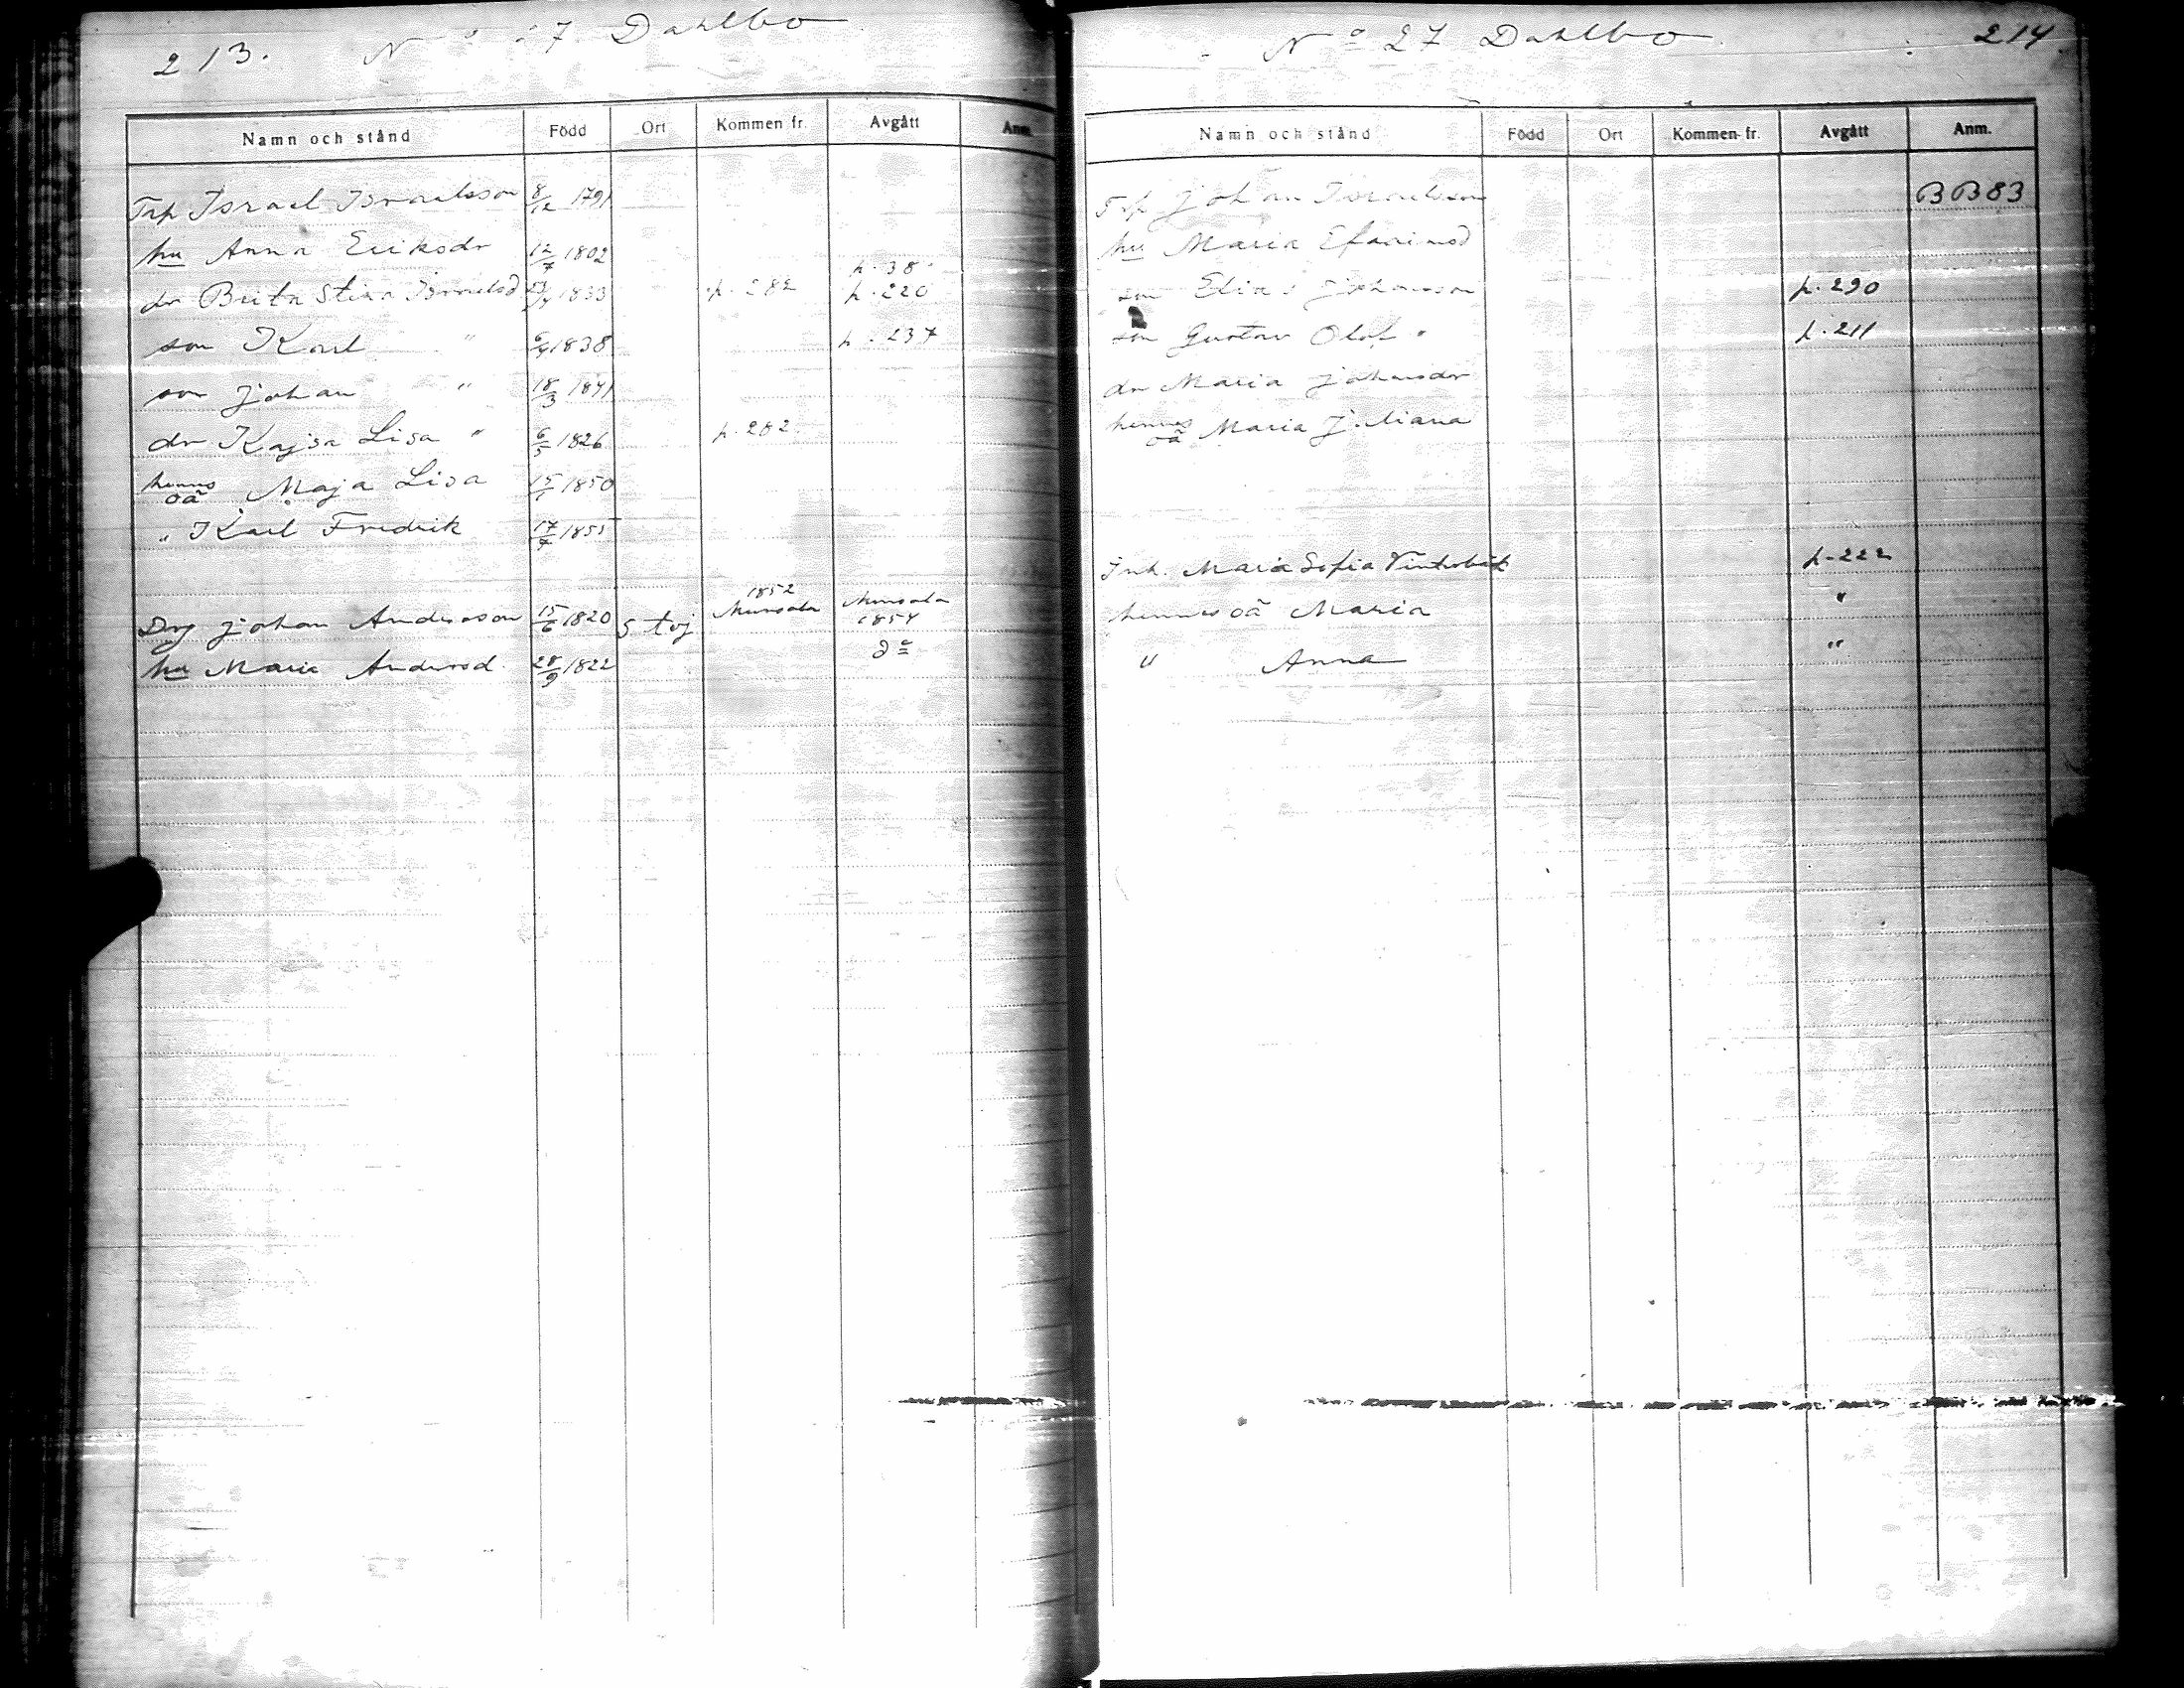 213. No 27 Dahlbo
Namn och stånd Född Ort Kommen fr. Avgått Anm.
Trp Israel Israelsson 8/12 1791
hu Anna Eriksdr 12/7 1802
p. 38
dr Brita Stina Israelsd 1833 p. 282 p. 220
son Karl " 1838 p. 237
son Johan " 18/3 1841
dr Kajsa Lisa " 6/5 1826 p. 282.
hennes oä Maja Lisa 15/1 1850
" Karl Fredrik 17/7 1855
1852
Drg Johan Andersson 15/6 1820 S tvj Munsala Munsala 1854
hu Maria Andersd. 28/9 1822 do
No 27 Dahlbo 214
Namn och stånd Född Ort Kommen fr. Avgått Anm.
Trp Johan Israelsson BB83
hu Maria Efraimsd
son Elias Johansson p. 290
son Gustav Olof " p. 211
dr Maria Johansdr
hennes oä Maria Juliana
Inh. Maria Sofia Vinterbäk p. 222
hennes oä Maria "
" Anna "